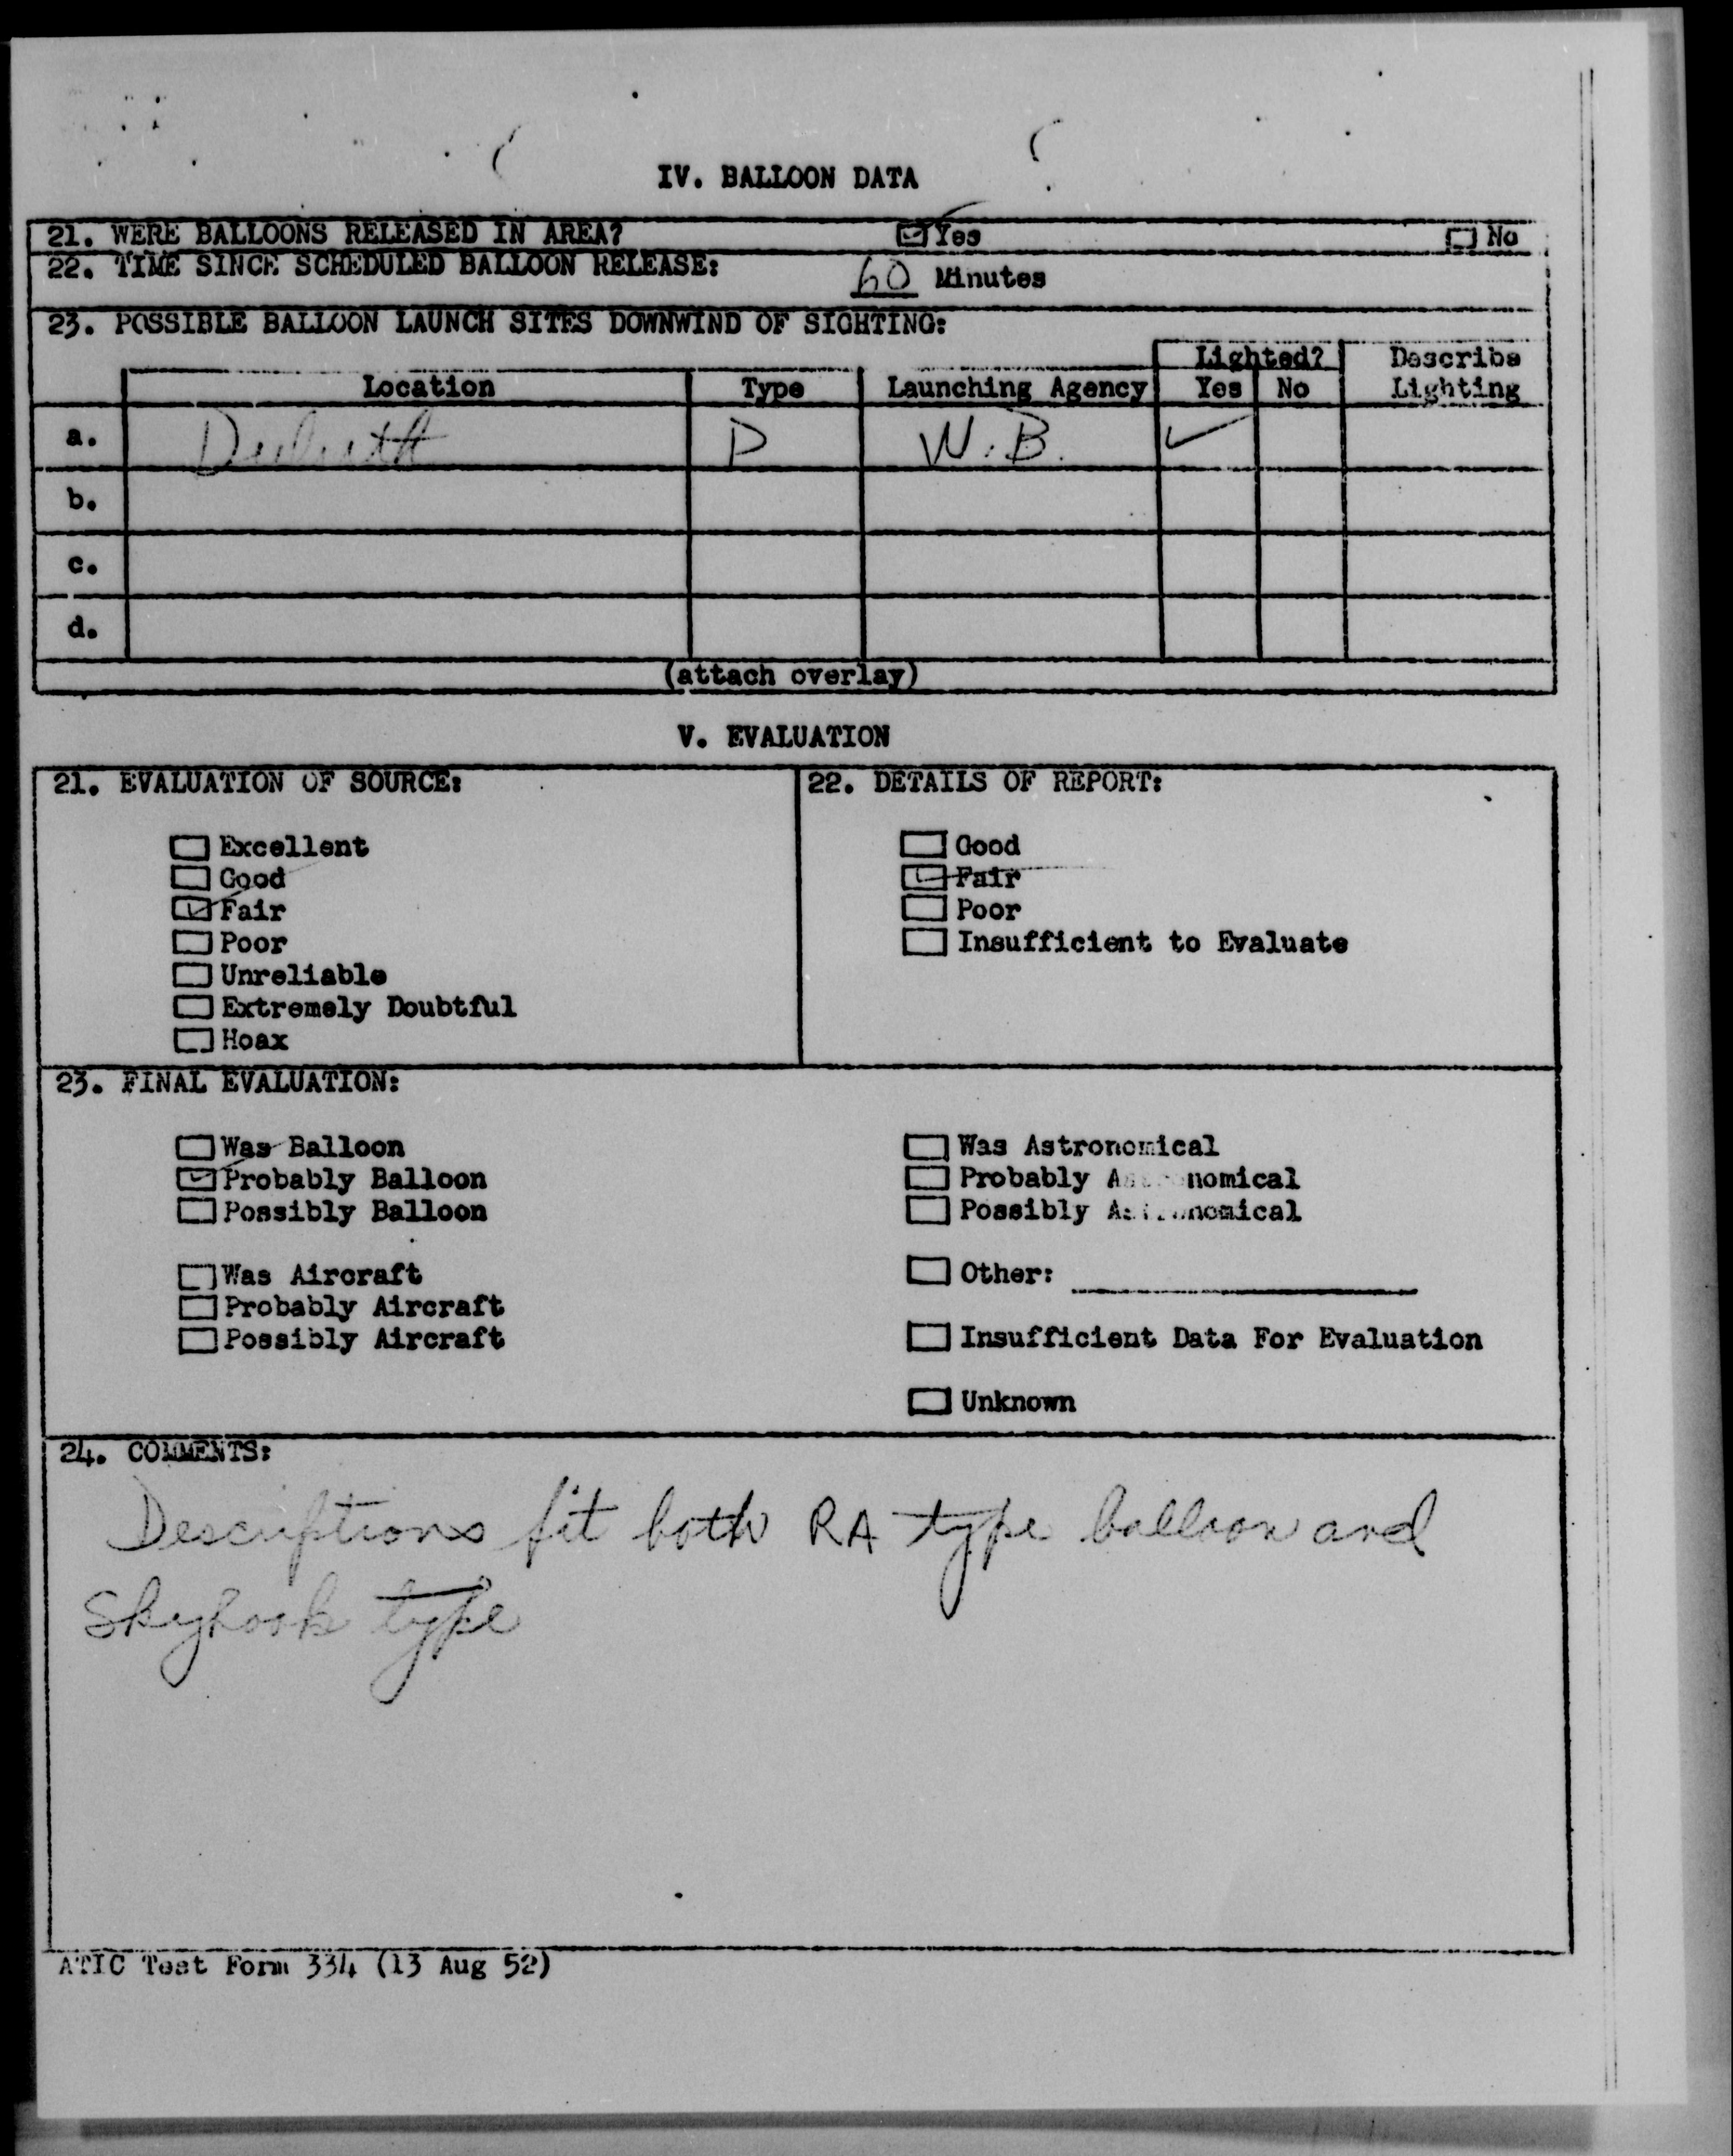 IV. BALLOON DATA
21. WERE BALLOONS RELEASED IN AREA? ☑ Yes ☐ No
22. TIME SINCE SCHEDULED BALLOON RELEASE: 60 Minutes
23. POSSIBLE BALLOON LAUNCH SITES DOWNWIND OF SIGHTING:
Lighted? Describe
Location Type Launching Agency Yes No Lighting
a. Duluth P W.B. ✓
b.
c.
d.
(attach overlay)
V. EVALUATION
21. EVALUATION OF SOURCE: 22. DETAILS OF REPORT:
☐ Excellent ☐ Good
☐ Good ☑ Fair
☑ Fair ☐ Poor
☐ Poor ☐ Insufficient to Evaluate
☐ Unreliable
☐ Extremely Doubtful
☐ Hoax
23. FINAL EVALUATION:
☐ Was Balloon ☐ Was Astronomical
☑ Probably Balloon ☐ Probably Astronomical
☐ Possibly Balloon ☐ Possibly Astronomical
☐ Was Aircraft ☐ Other:
☐ Probably Aircraft
☐ Possibly Aircraft ☐ Insufficient Data For Evaluation
☐ Unknown
24. COMMENTS:
Descriptions fit both RA type balloon and
Skyhook type
ATIC Test Form 334 (13 Aug 52)